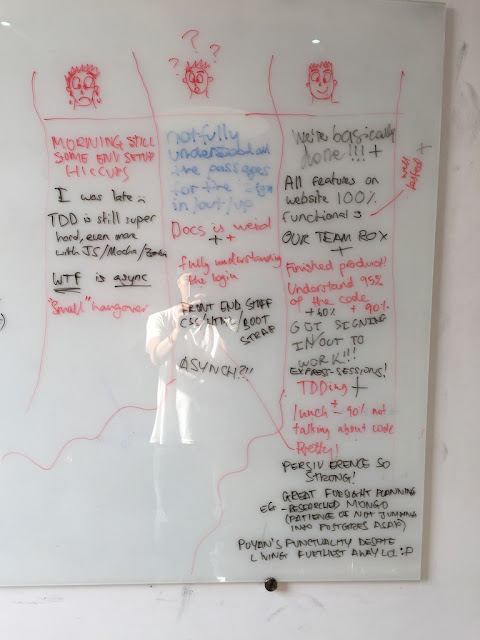 MORNING STILL
SOME ENV SETUP
HICCUPS
I was late :
TDD is still super
hard, even more
with JS/Mocha/
WTF is async
"Small" hangover
? ? ?
not fully
understood
the passages
for the
in/out/up
Docs is weird
+ +
fully understanding
the login
FRONT END STUFF
CSS/HTML/BOOT
STRAP
ASYNCH?!!
We're basically
done!!! +
All features on
website 100%
functional :)
well
tested +
OUR TEAM ROX
+
Finished product!
Understand 95%
of the code
+60% + 90%
GOT SIGNING
IN/OUT TO
WORK!!!
EXPRESS-SESSIONS!
TDDing +
lunch + - 90% not
talking about code
Pretty!
PERSIVERENCE SO
STRONG!
GREAT FORSIGHT PLANNING
EG - RESEARCHED MONGO
(PATIENCE OF NOT JUMPING
INTO POSTGRES ASAP)
POYAN'S PUNCTUALITY DESPITE
LIVING FURTHEST AWAY LOL :P